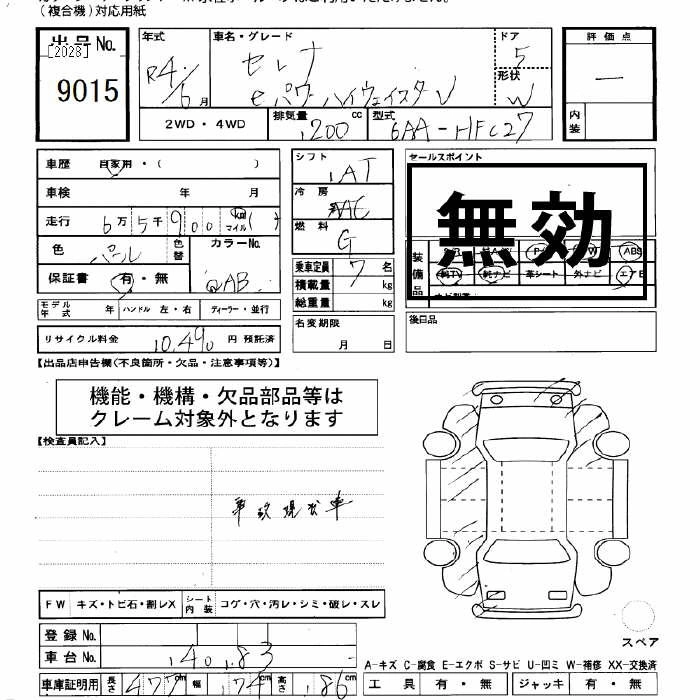 (複合機)対応用紙
出品No.
[2028]
9015
年式
R4/6月
車名・グレード
セレナ
eパワーハイウェイスターV
ドア
5
形状
W
評価点
―
内装
2WD・4WD
排気量 1200 cc
型式 6AA-HFC27
車歴 自家用・( )
車検 年 月
走行 6万5千900 km マイル
色 パール 色替
カラーNo. QAB
保証書 有・無
モデル年式 年 ハンドル 左・右 ディーラー・並行
リサイクル料金 10,490円 預託済
シフト IAT
冷房 AAC
燃料 G
乗車定員 7 名
積載量 kg
総重量 kg
名変期限
月 日
セールスポイント
無効
装備品
ABS
純TV 純ナビ 革シート 外ナビ エアB
後日品
【出品店申告欄(不良箇所・欠品・注意事項等)】
機能・機構・欠品部品等は
クレーム対象外となります
【検査員記入】
事故現状車
FW キズ・トビ石・割レX シート内装 コゲ・穴・汚レ・シミ・破レ・スレ
登録No.
車台No. 140183
車庫証明用 長さ 477cm 幅 174cm 高さ 186cm
スペア
A-キズ C-腐食 E-エクボ S-サビ U-凹ミ W-補修 XX-交換済
工具 有・無 ジャッキ 有・無